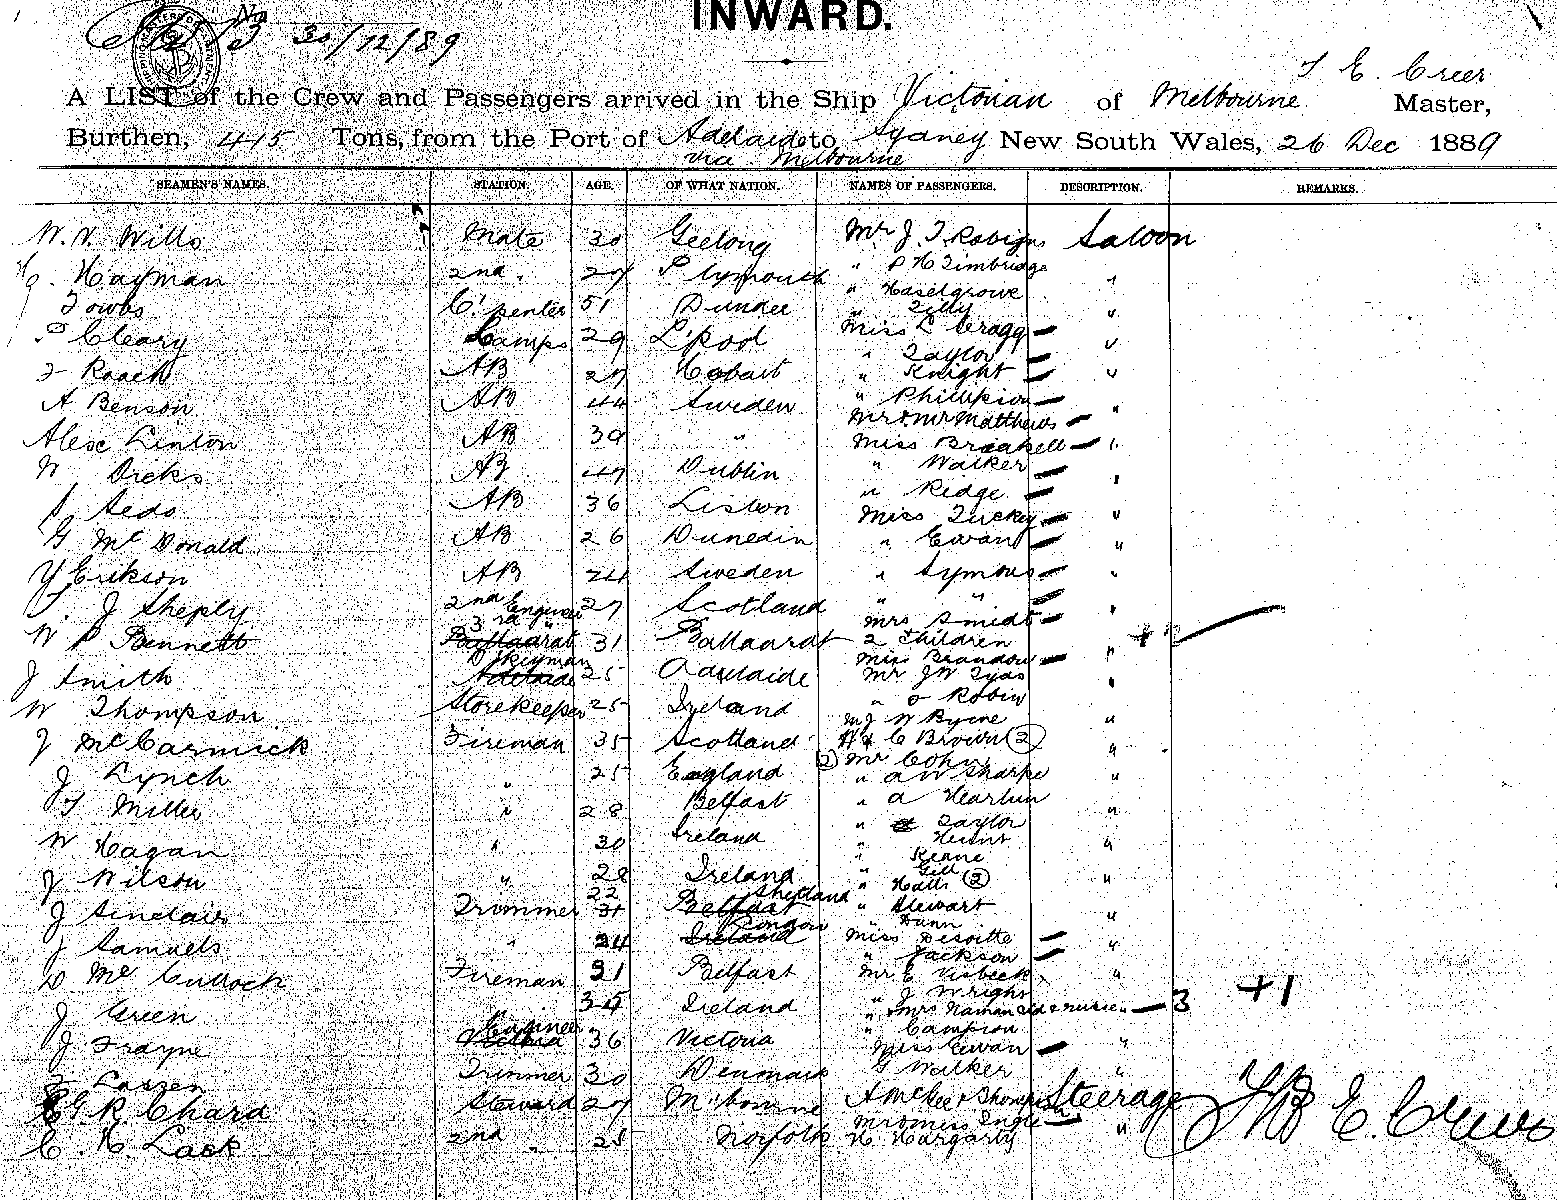 No
30/12/89
INWARD.
J E. Creer
A LIST of the Crew and Passengers arrived in the Ship Victorian of Melbourne Master,
Burthen, 415 Tons, from the Port of Adelaide to Sydney New South Wales, 26 Dec 1889
via Melbourne
SEAMEN'S NAMES. STATION. AGE. OF WHAT NATION. NAMES OF PASSENGERS. DESCRIPTION. REMARKS.
W. V. Wills Mate 30 Geelong Mr J. T. Robigns Saloon
Hayman 2nd " 27 Plymouth " P H Timbridge "
" Haselgrove
Towbs C'penter 51 Dundee " Tilly "
P Cleary Lamps 29 L'pool Miss L Cragg — "
" Taylor —
Roach AB 27 Hobart " Knight — "
A Benson AB 44 Sweden " Phillipson — "
Mr & Mrs Matthews —
Alex Linton AB 39 " Miss Breakell — "
W Dicks AB 47 Dublin " Walker — "
S Sedo AB 36 Lisbon " Ridge —
Miss Tuckey — "
G McDonald AB 26 Dunedin " Ewan — "
Y Erikson AB 24 Sweden " Symons — "
J Sheply 2nd Engineer 27 Scotland " " — "
W P Bennett 3rd " Ballaarat 31 Ballaardt Mrs Smidt —
2 Children "
J Smith D'keyman Adelaide 25 Adelaide Miss Brandon —
Mr J W Tyas "
W Thompson Storekeeper 25 Ireland " O Robin
W Byrne "
J McCarmick Fireman 35 Scotland H & C Brown (2) "
J Lynch " 25 England (2) Mr Cohn
" A W Sharpe "
T Miller " 28 Belfast " A Hearlun "
W Hagan " 30 Ireland " Taylor
" Hunt "
" Keane
J Wilson " 28 Ireland " Gill
" Halls (2) "
J Sinclair Trimmer 22 31 Belfast Shetland " Stewart "
" Dunn
J Samuels " 24 Ireland London Miss Desoitte — "
" Jackson —
D McCullock Fireman 31 Belfast Mr E Visbeck "
" J Wright
J Green 34 Ireland " Mrs Naman & nurse " — 3 +1
" Campion
J Frayne Engineer Victoria 36 Victoria Miss Ewan — "
Lassen Trimmer 30 Denmark G Walker "
G R Chard Steward 27 M'bourne A McGee & Thompson Steerage
Mr & Miss Ingle —
E. H. Lack 2nd " 25 Norfolk H Hargarty "